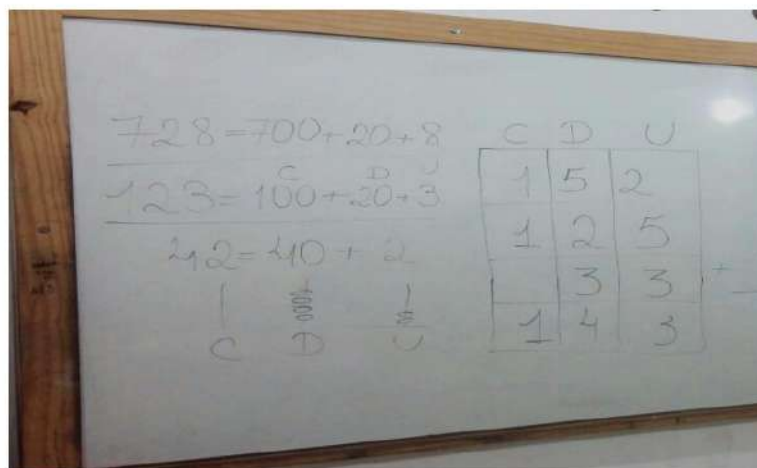 728=700+20+8
C D U
123=100+20+3
42=40+2
C D U
C D U
1 5 2
1 2 5
3 3 +
1 4 3